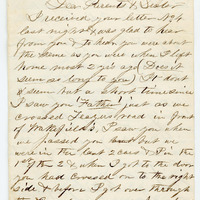 Dear Parents & Sister
I received your letter No 4
last night & was glad to hear
from you & to hear you are about
the same as you were when I left
home most 2 yrs ago Does it
seem so long to you) It dont
seem but a short time since
I saw you (Father) just as we
crossed road in front
of I saw you when
we passed you but we
were in the last 2 cars & I in the
1st of the 2 &, when I got to the door
you had crossed on to the right
side & before I got over through
the